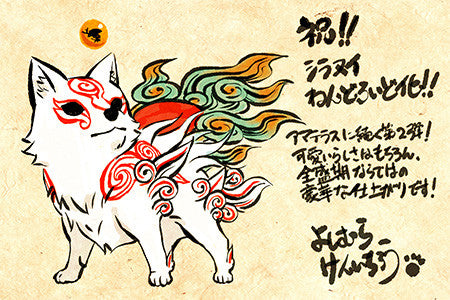 祝!!
シラヌイ
ねんどろいど化!!
アマテラスに続く第2弾!
可愛いらしさはもちろん、
全盛期ならではの
豪華な仕上がりです!
よしむら
けんいちろう